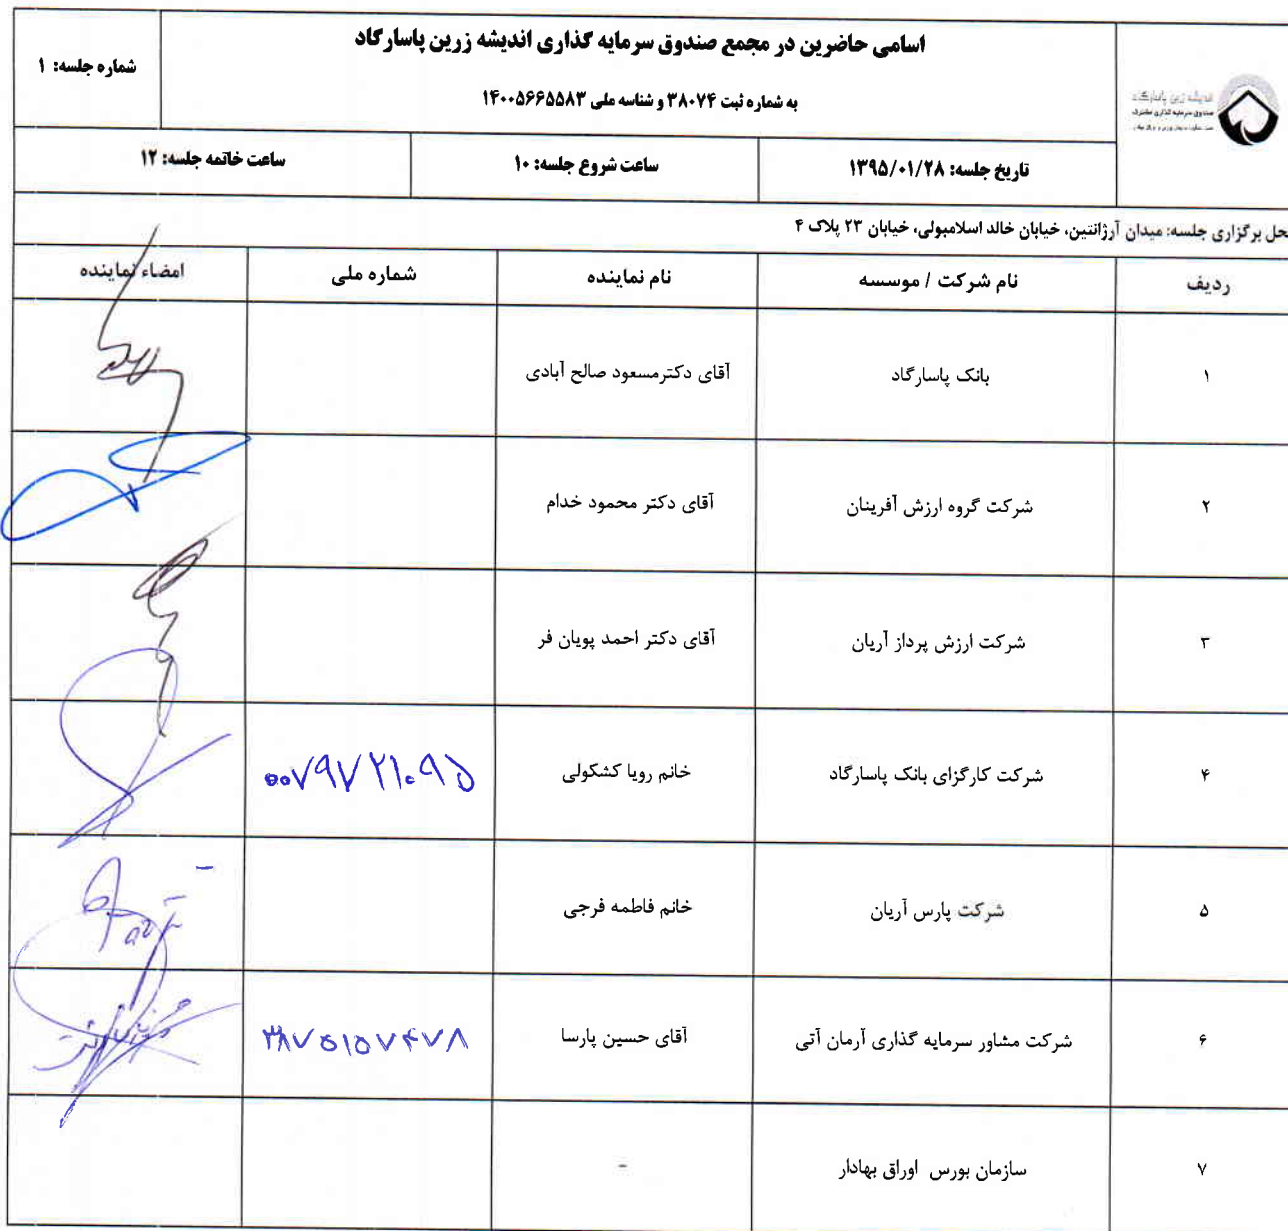 اسامی حاضرین در مجمع صندوق سرمایه گذاری اندیشه زرین پاسارگاد
به شماره ثبت ۳۸۰۷۴ و شناسه ملی ۱۴۰۰۵۶۶۵۵۸۳
شماره جلسه: ۱
اندیشه زرین پاسارگاد
صندوق سرمایه گذاری مشترک
تاریخ جلسه: ۱۳۹۵/۰۱/۲۸ ساعت شروع جلسه: ۱۰ ساعت خاتمه جلسه: ۱۲
حل برگزاری جلسه: میدان آرژانتین، خیابان خالد اسلامبولی، خیابان ۲۳ پلاک ۴
ردیف نام شرکت / موسسه نام نماینده شماره ملی امضاء نماینده
۱ بانک پاسارگاد آقای دکترمسعود صالح آبادی
۲ شرکت گروه ارزش آفرینان آقای دکتر محمود خدام
۳ شرکت ارزش پرداز آریان آقای دکتر احمد پویان فر
۴ شرکت کارگزای بانک پاسارگاد خانم رویا کشکولی ۰۰۷۹۷۲۱۰۹۵
۵ شرکت پارس آریان خانم فاطمه فرجی
۶ شرکت مشاور سرمایه گذاری آرمان آتی آقای حسین پارسا ۳۸۷۵۱۵۷۴۷۸
۷ سازمان بورس اوراق بهادار -